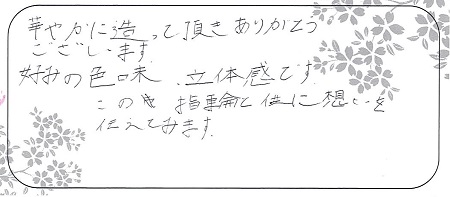 華やかに造って頂きありがとう
ございます。
好みの色味、立体感です
この 指輪と供に想いを
伝えてみます。